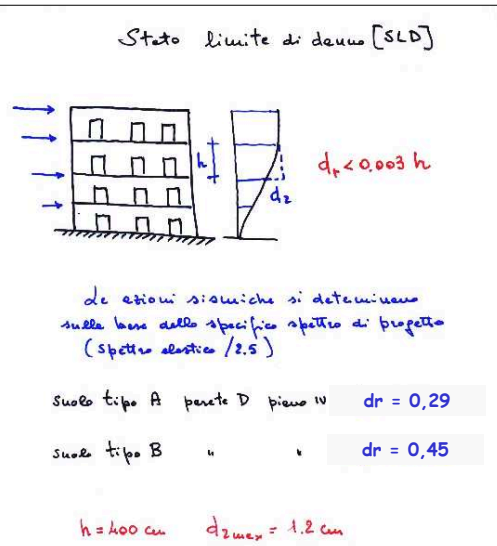 Stato limite di danno [SLD]
h
d₂
dᵣ < 0.003 h
Le azioni sismiche si determinano
sulla base dello specifico spettro di progetto
(spettro elastico /2.5)
suolo tipo A parete D piano IV dr = 0,29
suolo tipo B " " dr = 0,45
h = 400 cm d₂ max = 1.2 cm